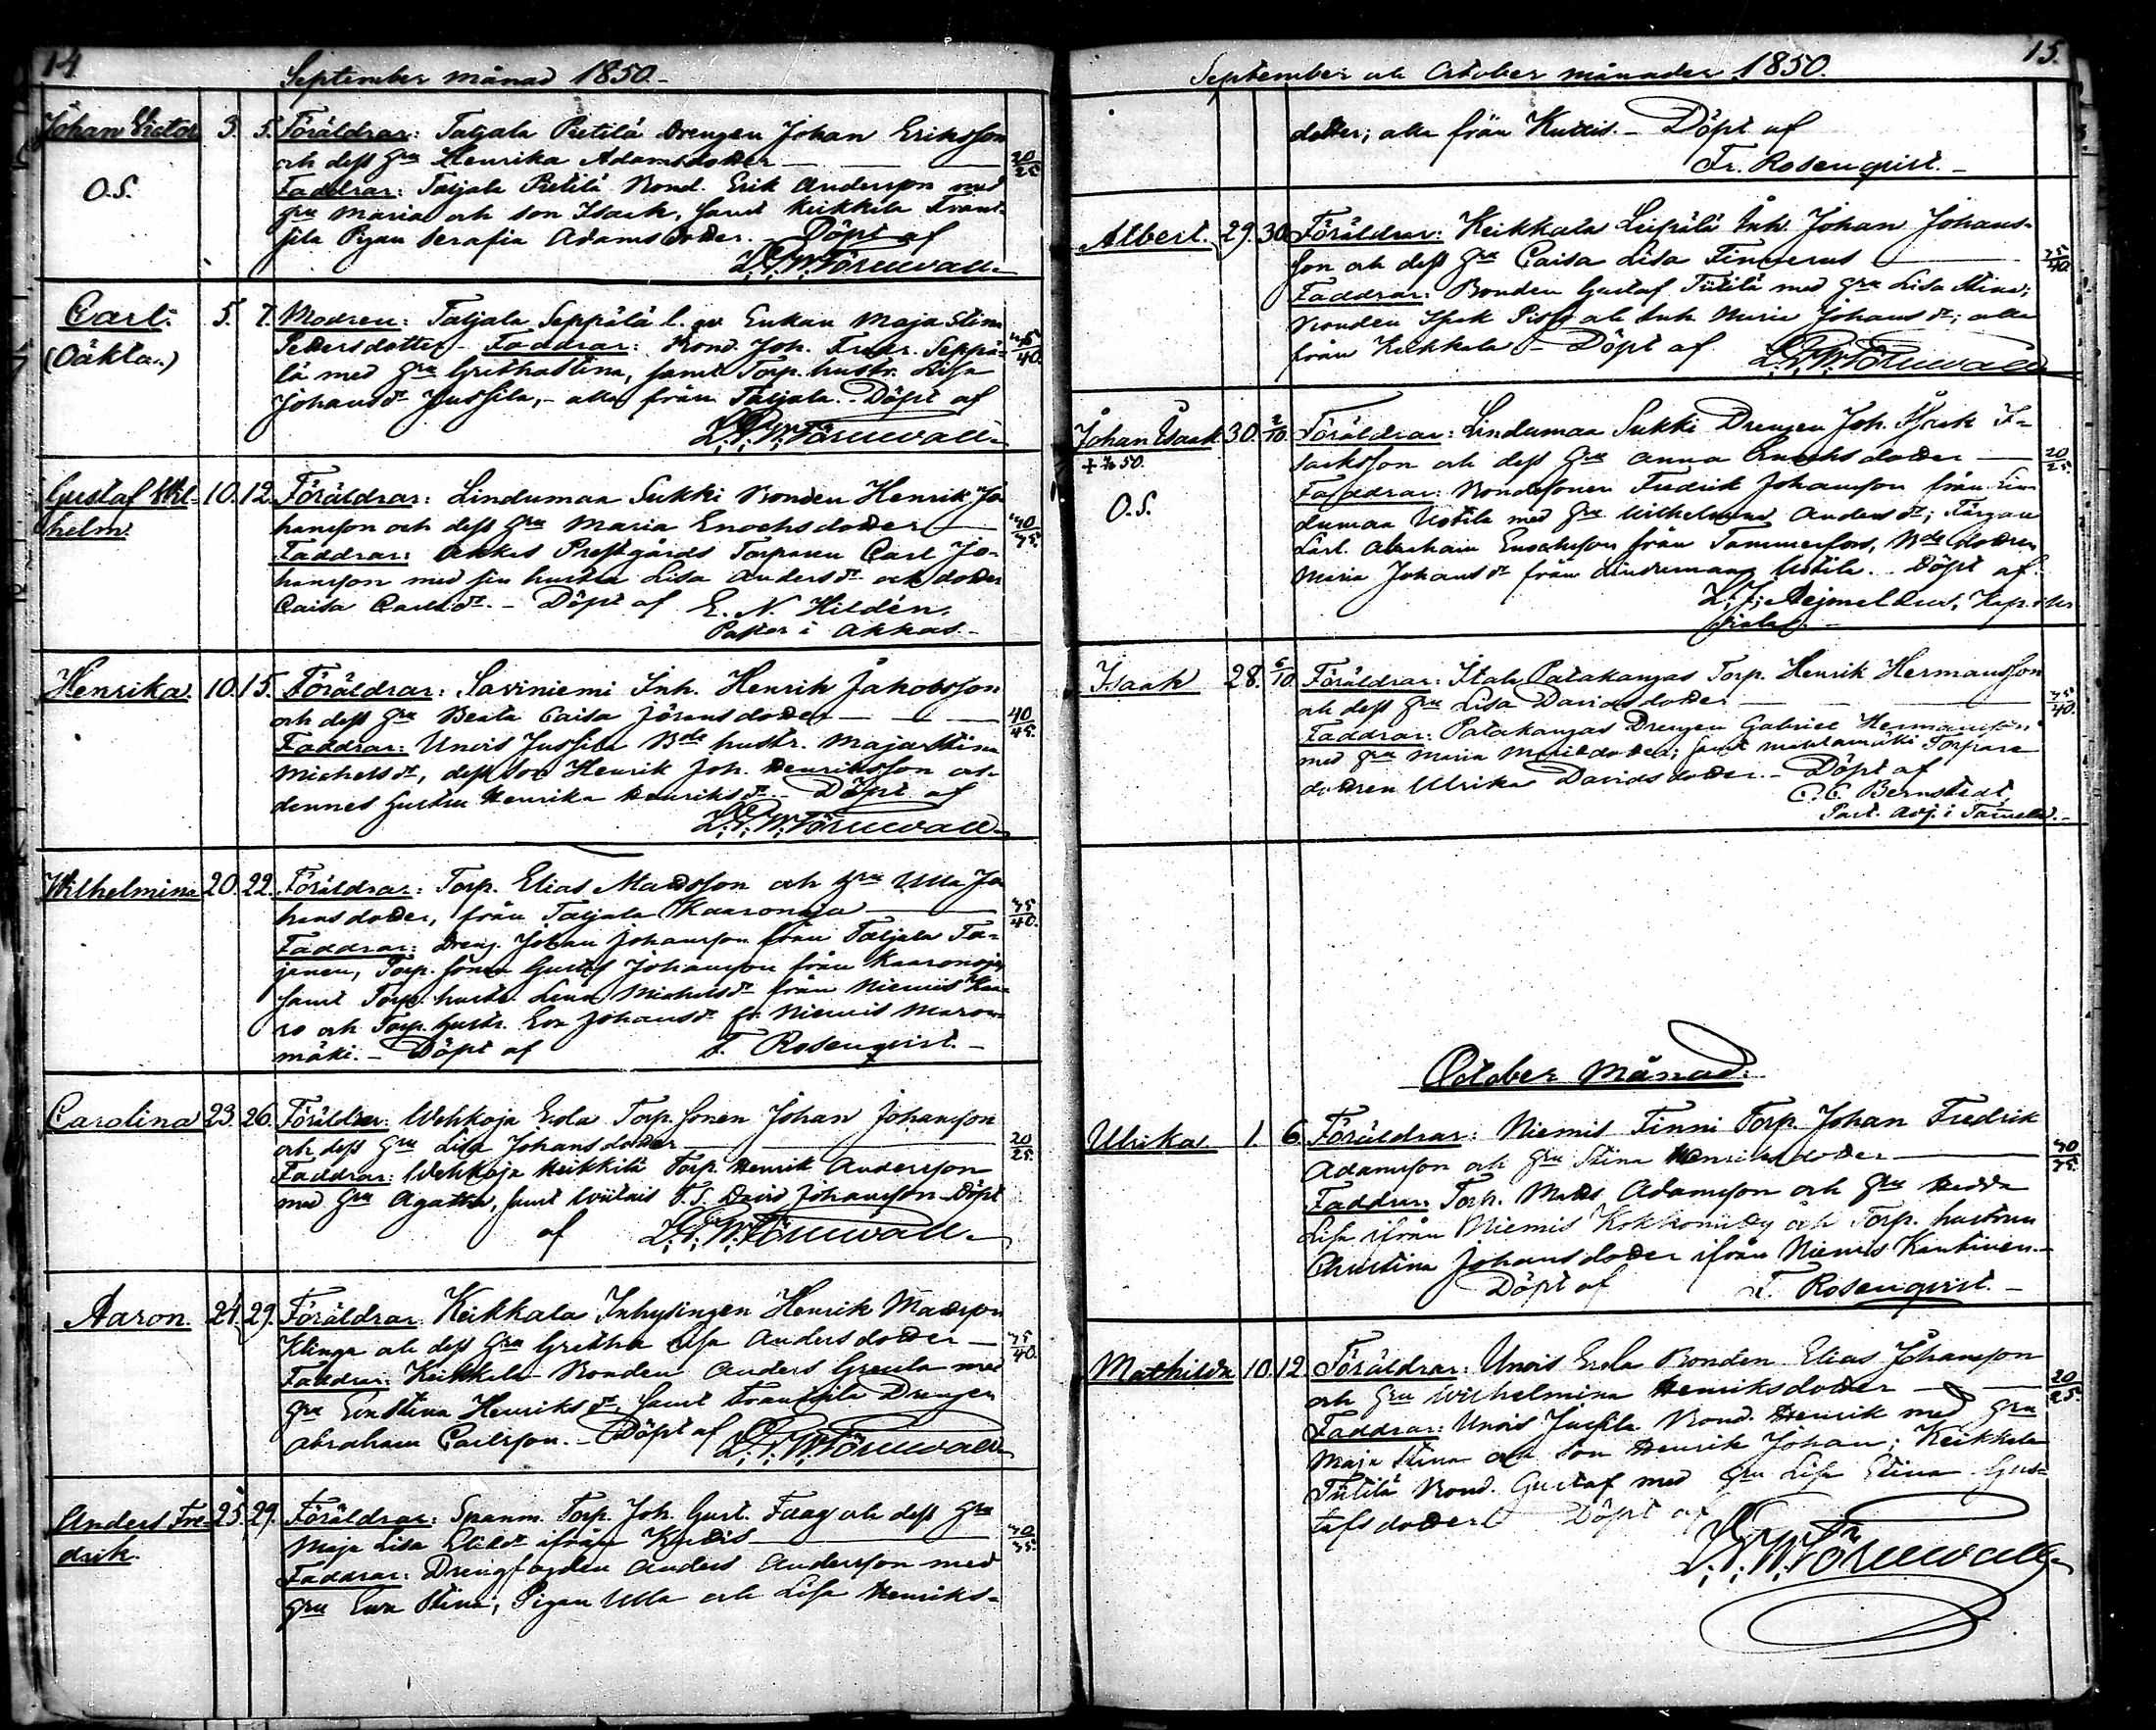 14
September månad 1850.-
Johan Victor 3. 5. Föräldrar: Taljala Pietilä Drengen Johan Eriksson
och dess Hru Henrika Adamsdotter 20/25
O.S. Faddrar: Taljala Pietilä Bond. Erik Andersson med
Hru Maria och son Isack, samt Keikkala Frant-
sila Pigan Serafia Adamsdotter. - Döpt af
Törnewall
Carl. 5. 7. Modren: Taljala Seppälä Enkan Maja Stina
(Oäkta.) Pettersdotter - Faddrar: Bond. Joh. Fredr. Seppä- 35/40.
lä med Hru Gretha Stina, samt Torp. hustr. Lisa
Johansdr Jussila, - alla från Taljala. - Döpt af
Törnewall
Gustaf Wil- 10. 12. Föräldrar: Lindumaa Sukki Bonden Henrik Jo-
helm. hansson och dess Hru Maria Enochsdotter 30/35.
Faddrar: Akkas Prestgårds Torparen Carl Jo-
hansson med sin hustru Lisa Andersdr och dotter
Caisa Carlsdr. - Döpt af E. N. Hildén.
Pastor i Akkas. -
Henrika. 10. 15. Föräldrar: Saviniemi Inh. Henrik Jakobsson
och dess Hru Beata Caisa Jöransdotter 40/45.
Faddrar: Unois Jussila Bde hustr. Maja Stina
Michelsdr, dess son Henrik Joh. Henriksson och
dennes hustru Henrika Henriksdr. - Döpt af
Törnewall
Wilhelmina 20. 22. Föräldrar: Torp. Elias Mattsson och Hru Ulla Jo-
hansdotter, från Taljala Kaaronoja 35/40.
Faddrar: Dreng. Johan Johansson från Taljala
Torp. sonen Gustaf Johansson från Kaaronoja,
samt Torp. hustr. Lena Michelsdr från Niemis
och Torp. hustr. Eva Johansdr fr. Niemis
mäki. - Döpt af F. Rosenqvist. -
Carolina 23. 26. Föräldrar: Wehkoja Erola Torp. sonen Johan Johansson
och dess Hru Lisa Johansdotter 20/25.
Faddrar: Wehkoja Heikkilä Torp. Henrik Andersson
med Hru Agatha, samt T. S. David Johansson - Döpt
af Törnewall
Aaron. 24. 29. Föräldrar: Keikkala Inhysingen Henrik Mattsson
Klinga och dess Hru Gretha Lisa Andersdotter 35/40.
Faddrar: Keikkala Bonden Anders Greula med
Hru Eva Stina Henriksdr, samt Frantsila Drengen
Abraham Carlsson. - Döpt af Törnewall
Anders Fre- 25. 29. Föräldrar: Spanm. Torp. Joh. Gust. och dess Hru
drik. Maja Lisa ifrån Kuttis 30/35.
Faddrar: Drengfogden Anders Andersson med
Hru Eva Stina, Pigan Ulla och Lisa Henriks-
15.
September och October månader 1850.
dotter; alla från Kuttis. - Döpt af
Fr. Rosenqvist. -
Albert. 29. 30. Föräldrar: Keikkala Leipälä Inh. Johan Johans-
son och dess Hru Caisa Lisa Finnerus 35/40.
Faddrar: Bonden Gustaf Tiitilä med Hru Lisa Stina;
Bonden Isak och Inh. Maria Johansdr; alla
från Keikkala - Döpt af Törnewall
Johan Isaak 30. 2/10. Föräldrar: Lindumaa Sukki Drengen Joh. Isaak I-
sacksson och dess Hru Anna Enochsdotter 20/25.
O.S. Faddrar: Bondesonen Fredrik Johansson från Lin-
dumaa Uotila med Hru Wilhelmina Andersdr; Färgare
Lärl. Abraham Enochsson från Tammerfors, Bde dottren
Maria Johansdr från Lindumaa Uotila. - Döpt af
Aejmelæus,
Isaak 28. 6/10. Föräldrar: Ittah Patakangas Torp. Henrik Hermansson
och dess Hru Lisa Davidsdotter 35/40.
Faddrar: Patakangas Drengen Gabriel Hermansson
med Hru Maria samt Torpare
dottren Ulrika Davidsdotter. - Döpt af
C. C. Bernstedt,
Past. Adj. i
October Månad.
Ulrika. 1. 6. Föräldrar: Niemis Finni Torp. Johan Fredrik
Adamsson och Hru Stina Henriksdotter 30/35.
Faddrar: Torp. Matts Adamsson och Hru Hedda
Lisa ifrån Niemis och Torp. hustrun
Christina Johansdotter ifrån Niemis Kantinen. -
Döpt af F. Rosenqvist. -
Mathilda 10. 12. Föräldrar: Unois Erola Bonden Elias Johansson
och Hru Wilhelmina Henriksdotter 20/25.
Faddrar: Unois Jussila Bond. Henrik med Hru
Maja Stina och son Henrik Johan; Keikkala
Tiitilä Bond. Gustaf med Hru Lisa Stina Gus-
tafsdotter. Döpt af
Törnewall